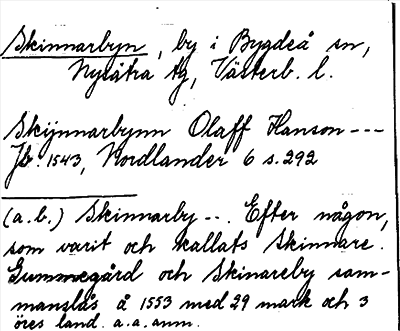 Skinnarbyn, by i Bygdeå sn,
Nysätra tg, Västerb. l.
Skijnnarbynn Olaff Hanson ---
Jb. 1543, Nordlander 6 s. 292
(a.b.) Skinnarby --. Efter någon,
som varit och kallats Skinnare.
Gummegård och Skinareby sam-
manslås å 1553 med 29 mark och 3
öres land. a.a. anm.